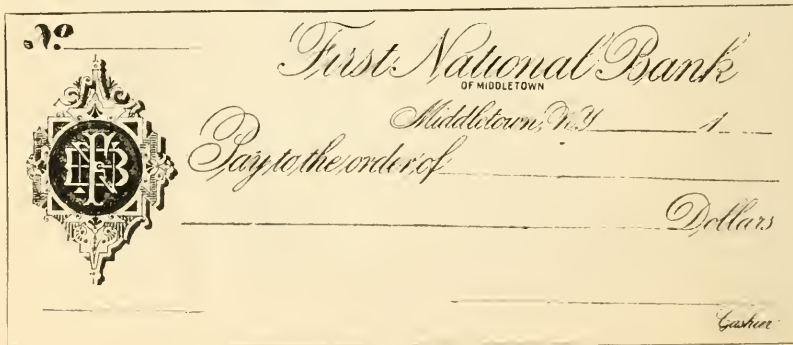 No
First National Bank
OF MIDDLETOWN
Middletown, N.Y. 1
Pay to the order of
Dollars
Cashier
FNB